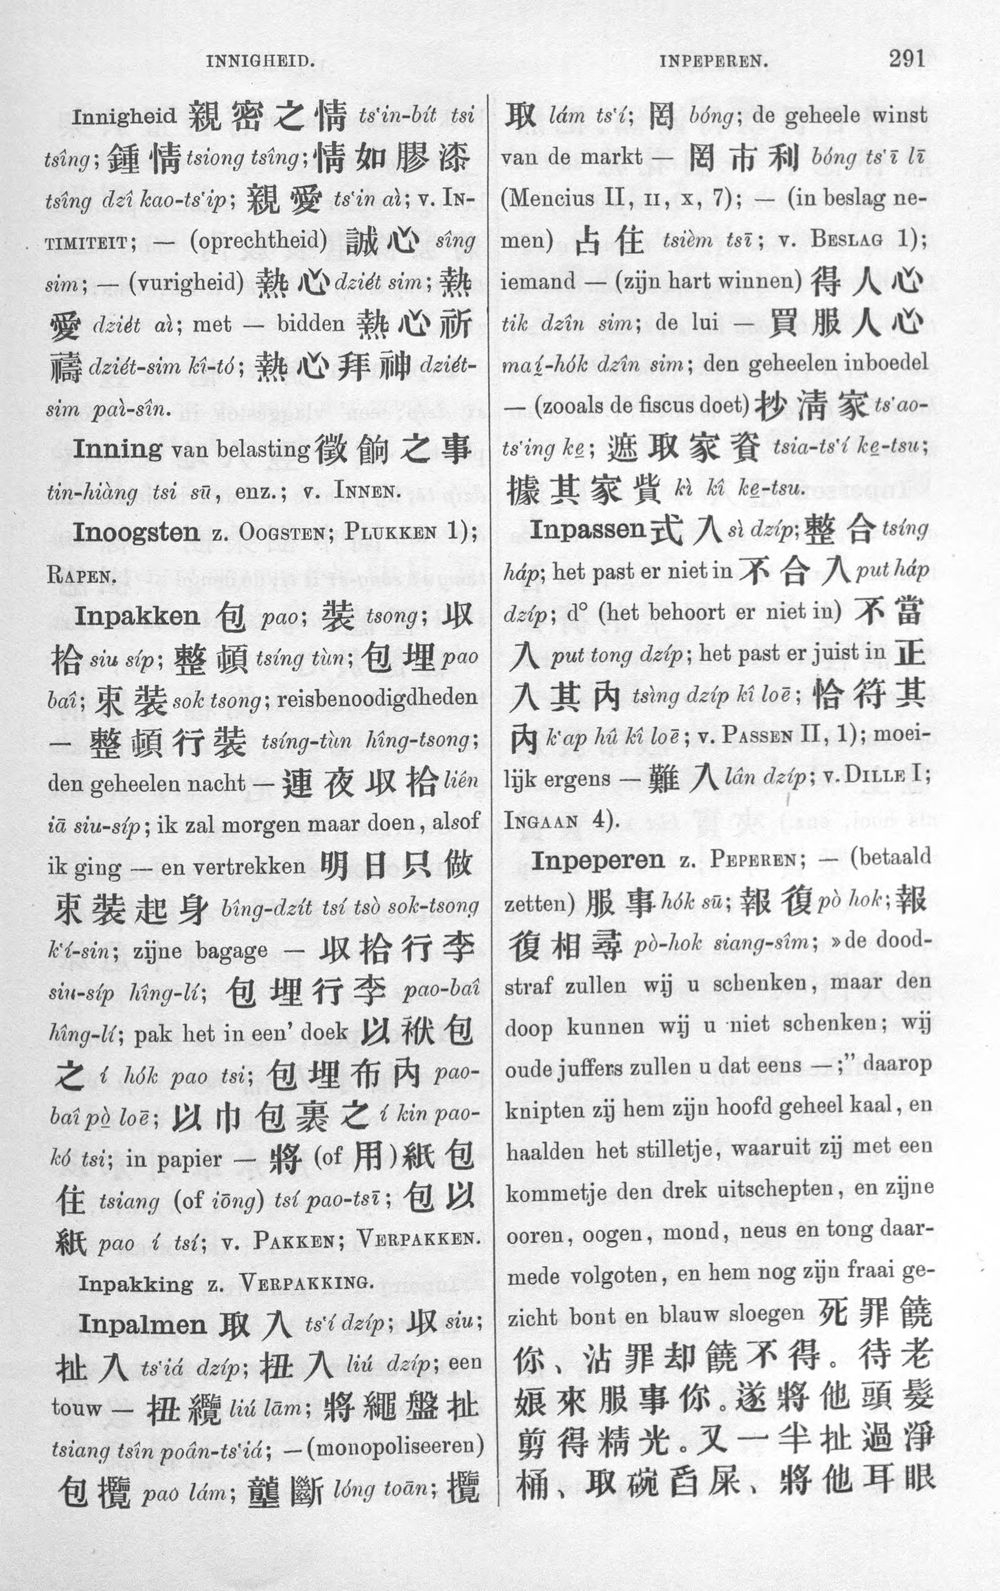 INNIGHEID.
INPEPEREN.
291
Innigheid 親密之情 ts'in-bít tsi
tsîng; 鍾情 tsiong tsîng; 情如膠漆
tsîng dzî kao-ts'ip; 親愛 ts'in aì; v. IN-
TIMITEIT; — (oprechtheid) 誠心 sîng
sim; — (vurigheid) 熱心 dziét sim; 熱
愛 dziét aì; met — bidden 熱心祈
禱 dziét-sim kî-tó; 熱心拜神 dziét-
sim paì-sîn.
Inning van belasting 徵餉之事
tin-hiàng tsi sū, enz.; v. INNEN.
Inoogsten z. OOGSTEN; PLUKKEN 1);
RAPEN.
Inpakken 包 pao; 裝 tsong; 収
拾 siu síp; 整頓 tsíng tùn; 包埋 pao
baî; 束裝 sok tsong; reisbenoodigdheden
— 整頓行裝 tsíng-tùn hîng-tsong;
den geheelen nacht — 連夜収拾 liên
iā siu-síp; ik zal morgen maar doen, alsof
ik ging — en vertrekken 明日只做
束裝起身 bîng-dzít tsí tsò sok-tsong
k'í-sin; zijne bagage — 収拾行李
siu-síp hîng-lí; 包埋行李 pao-baî
hîng-lí; pak het in een' doek 以袱包
之 í hók pao tsi; 包埋布內 pao-
baî pò̤ loē; 以巾包裹之 í kin pao-
kó tsi; in papier — 將 (of 用) 紙包
住 tsiang (of iōng) tsí pao-tsī; 包以
紙 pao í tsí; v. PAKKEN; VERPAKKEN.
Inpakking z. VERPAKKING.
Inpalmen 取入 ts'í dzíp; 収 siu;
扯入 ts'iá dzíp; 扭入 liú dzíp; een
touw — 扭纜 liú lām; 將繩盤扯
tsiang tsîn poân-ts'iá; — (monopoliseeren)
包攬 pao lám; 壟斷 lóng toān; 攬
取 lám ts'í; 罔 bóng; de geheele winst
van de markt — 罔市利 bóng ts'ī lī
(Mencius II, II, X, 7); — (in beslag ne-
men) 占住 tsièm tsī; v. BESLAG 1);
iemand — (zijn hart winnen) 得人心
tik dzîn sim; de lui — 買服人心
maí̤-hók dzîn sim; den geheelen inboedel
— (zooals de fiscus doet) 抄清家 ts'ao-
ts'ing ke̤; 遮取家資 tsia-ts'í ke̤-tsu;
據其家貲 kì kî ke̤-tsu.
Inpassen 式入 sì dzíp; 整合 tsíng
háp; het past er niet in 不合入 put háp
dzíp; d° (het behoort er niet in) 不當
入 put tong dzíp; het past er juist in 正
入其內 tsìng dzíp kî loē; 恰符其
內 k'ap hû kî loē; v. PASSEN II, 1); moei-
lijk ergens — 難入 lân dzíp; v. DILLE I;
INGAAN 4).
Inpeperen z. PEPEREN; — (betaald
zetten) 服事 hók sū; 報復 pò hok; 報
復相尋 pò-hok siang-sîm; »de dood-
straf zullen wij u schenken, maar den
doop kunnen wij u niet schenken; wij
oude juffers zullen u dat eens —;" daarop
knipten zij hem zijn hoofd geheel kaal, en
haalden het stilletje, waaruit zij met een
kommetje den drek uitschepten, en zijne
ooren, oogen, mond, neus en tong daar-
mede volgoten, en hem nog zijn fraai ge-
zicht bont en blauw sloegen 死罪饒
你、沾罪却饒不得。待老
娘來服事你。遂將他頭髮
剪得精光。又一半扯過淨
桶、取碗舀屎、將他耳眼